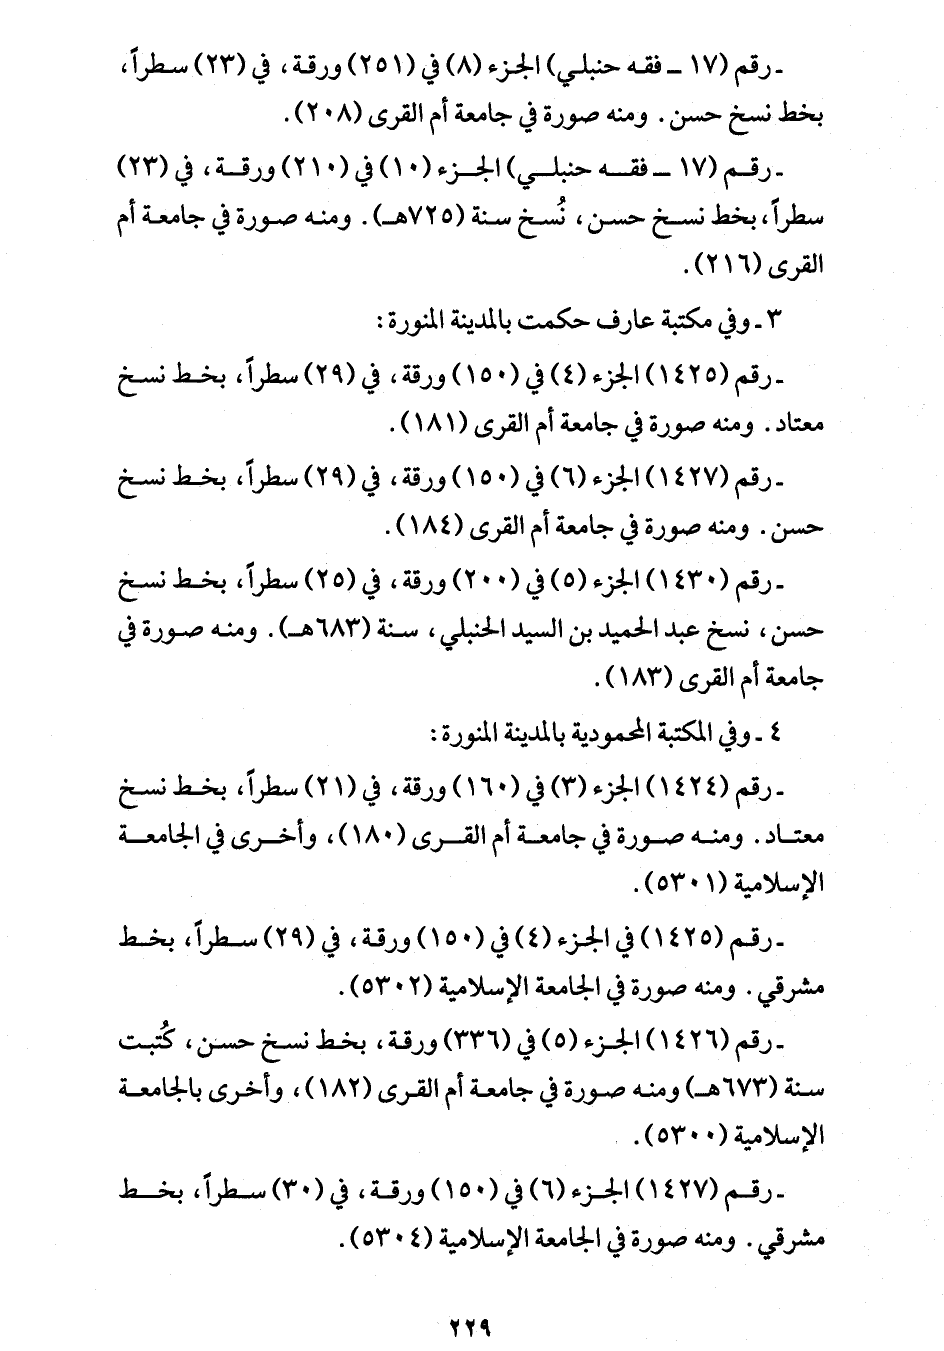 ـ رقم (١٧ ـ فقه حنبلي) الجزء (٨) في (٢٥١) ورقة، في (٢٣) سطراً،
بخط نسخ حسن. ومنه صورة في جامعة أم القرى (٢٠٨).
ـ رقم (١٧ ـ فقه حنبلي) الجزء (١٠) في (٢١٠) ورقة، في (٢٣)
سطراً، بخط نسخ حسن، نُسخ سنة (٧٢٥هـ). ومنه صورة في جامعة أم
القرى (٢١٦).
٣ ـ وفي مكتبة عارف حكمت بالمدينة المنورة:
ـ رقم (١٤٢٥) الجزء (٤) في (١٥٠) ورقة، في (٢٩) سطراً، بخط نسخ
معتاد. ومنه صورة في جامعة أم القرى (١٨١).
ـ رقم (١٤٢٧) الجزء (٦) في (١٥٠) ورقة، في (٢٩) سطراً، بخط نسخ
حسن. ومنه صورة في جامعة أم القرى (١٨٤).
ـ رقم (١٤٣٠) الجزء (٥) في (٢٠٠) ورقة، في (٢٥) سطراً، بخط نسخ
حسن، نسخ عبد الحميد بن السيد الحنبلي، سنة (٦٨٣هـ). ومنه صورة في
جامعة أم القرى (١٨٣).
٤ ـ وفي المكتبة المحمودية بالمدينة المنورة:
ـ رقم (١٤٢٤) الجزء (٣) في (١٦٠) ورقة، في (٢١) سطراً، بخط نسخ
معتاد. ومنه صورة في جامعة أم القرى (١٨٠)، وأخرى في الجامعة
الإسلامية (٥٣٠١).
ـ رقم (١٤٢٥) في الجزء (٤) في (١٥٠) ورقة، في (٢٩) سطراً، بخط
مشرقي. ومنه صورة في الجامعة الإسلامية (٥٣٠٢).
ـ رقم (١٤٢٦) الجزء (٥) في (٣٣٦) ورقة، بخط نسخ حسن، كُتبت
سنة (٦٧٣هـ) ومنه صورة في جامعة أم القرى (١٨٢)، وأخرى بالجامعة
الإسلامية (٥٣٠٠).
ـ رقم (١٤٢٧) الجزء (٦) في (١٥٠) ورقة، في (٣٠) سطراً، بخط
مشرقي. ومنه صورة في الجامعة الإسلامية (٥٣٠٤).
٢٢٩